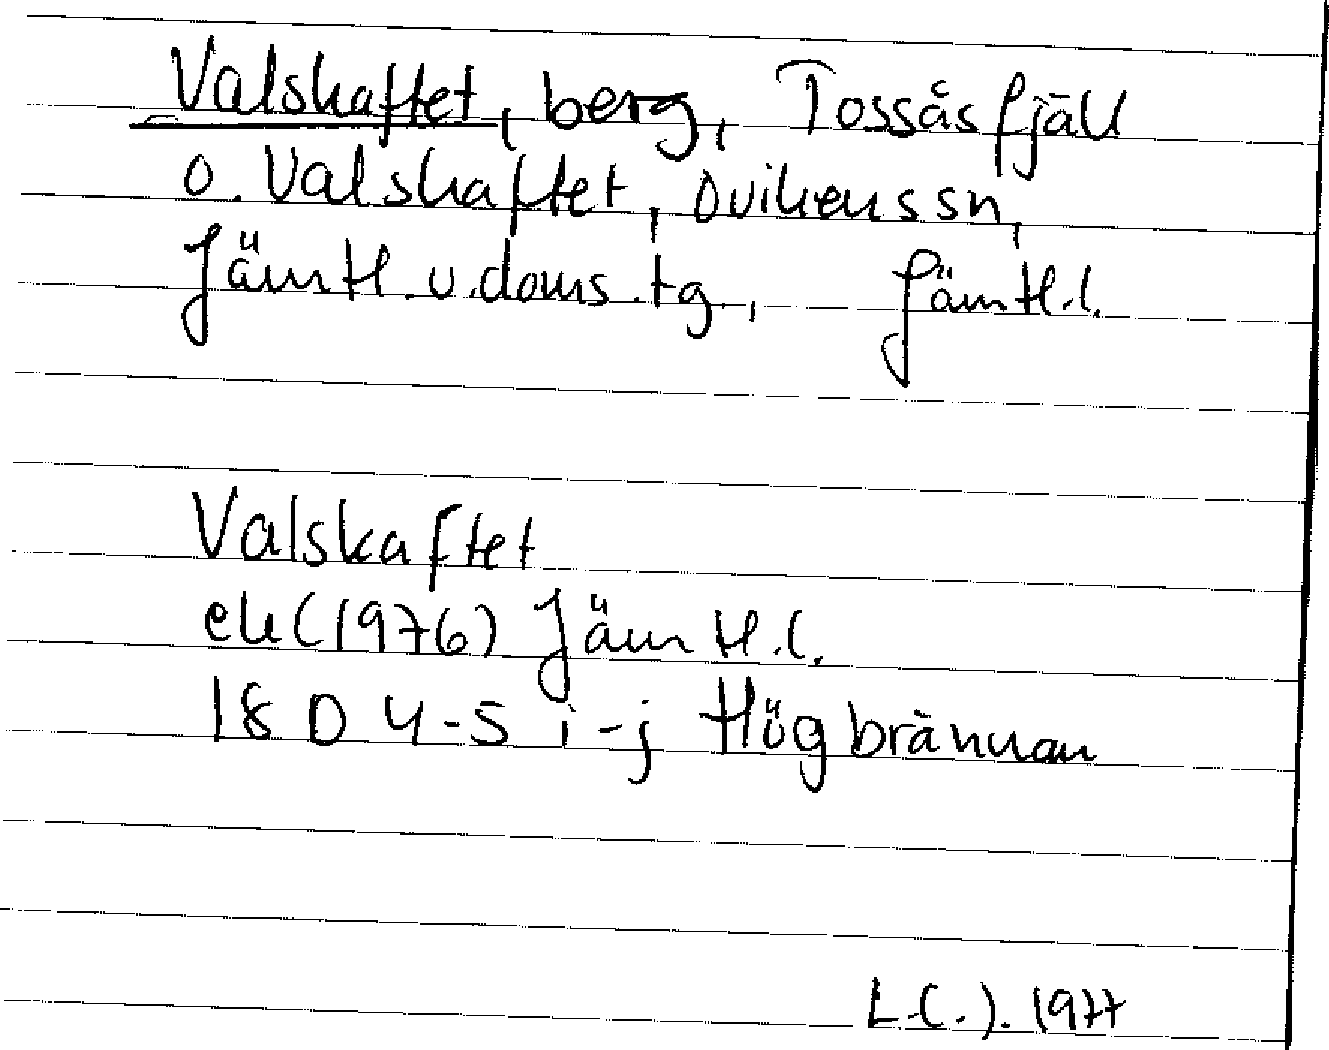 Valskaftet, berg, Tossåsfjäll
o. Valskaftet, Ovikens sn,
Jämtl. v. doms. tg., Jämtl. l.
Valskaftet
ek (1976) Jämtl. l.
18 D 4-5 i-j Högbrännan
1977